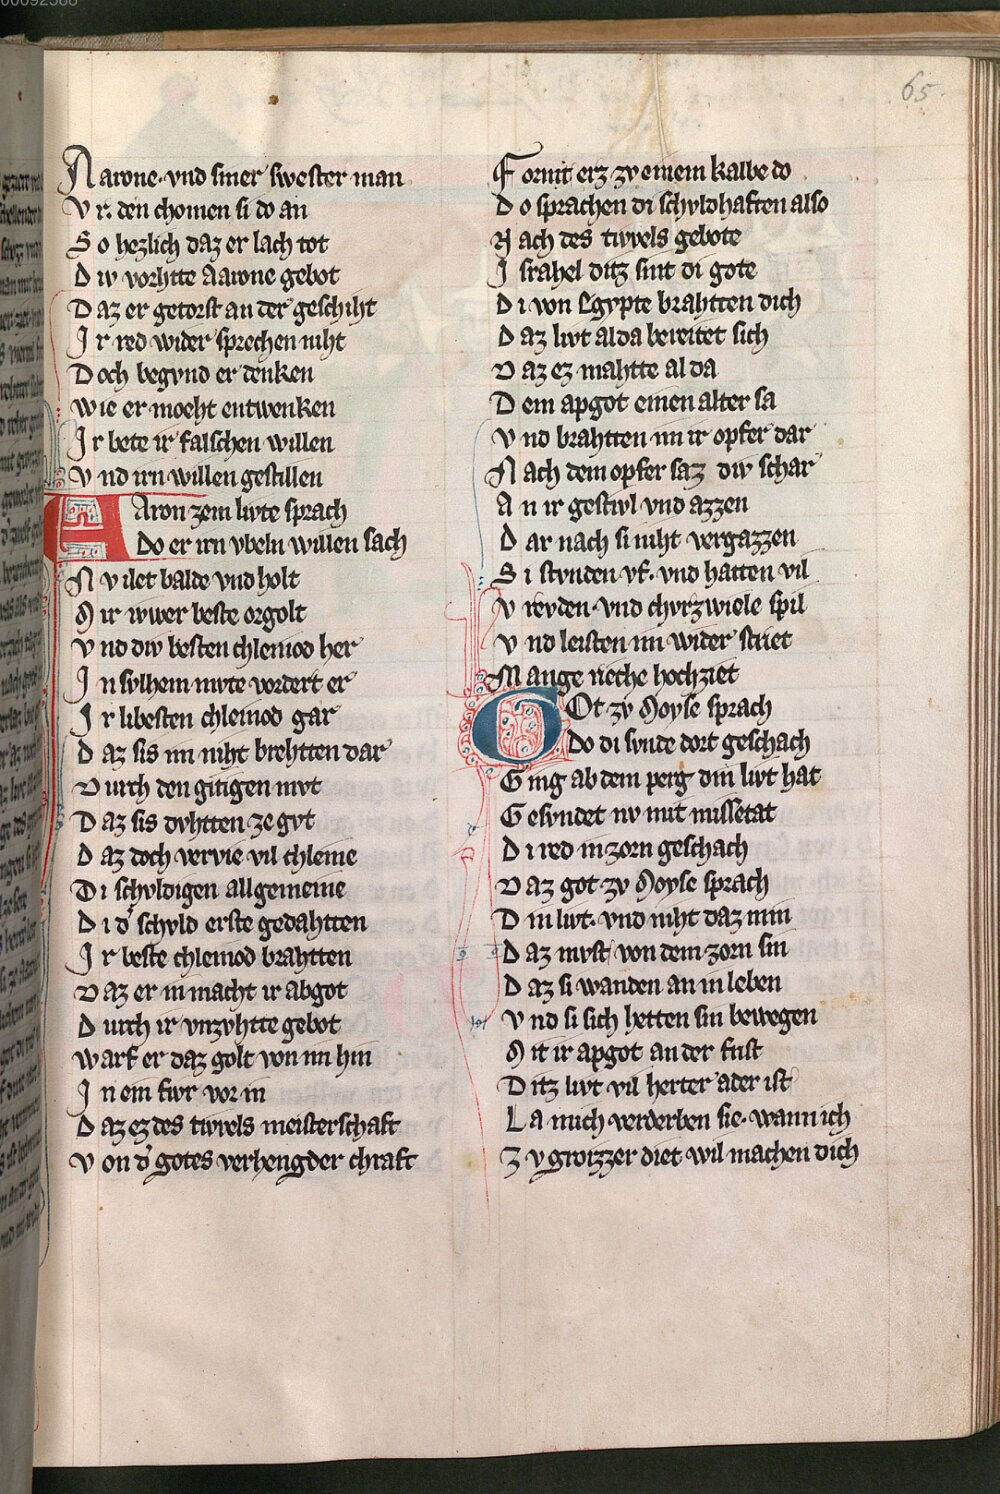 00092588
65
Aarone·vnd siner swester man
Vr· den chomen si do an
So hezlich daz er lach tot
Diw vorhtte Aarone gebot
Daz er getorst an der geschiht
Ir red wider sprechen niht
Doch begvnd er denken
Wie er moeht entwenken
Ir bete ir falschen willen
Vnd irn willen gestillen
Aaron zem livte sprach
Do er irn vbeln willen sach
Nv ilet balde vnd holt
Mir iwer beste orgolt
Vnd div besten chleinod her
In sylhem mvte vordert er
Ir libesten chleinod gar
Daz sis im niht brehtten dar
Durch den gitigen mvt
Daz sis dvhtten ze gvt
Daz doch vervie vil chleine
Di schvldigen allgemeine
Di d' schvld erste gedahtten
Ir beste chleinod brahtten
Daz er in macht ir abgot
Durch ir vnzvhtte gebot
Warf er daz golt von im hin
In ein fiwr vor in
Daz ez des tivvels meisterschaft
Von d' gotes verheng der chraft
Formt erz zv einem kalbe do
Do sprachen di schvldhaften also
Nach des tivvels gebote
Israhel ditz sint di gote
Di von Egypte brahtten dich
Daz livt alda bereitet sich
Daz ez mahtte al da
Dem apgot einen alter sa
Vnd brahtten im ir opfer dar
Nach dem opfer saz div schar
An ir gestivl vnd azzen
Dar nach si niht vergazzen
Si stvnden vf· vnd hatten vil
Vrevden·vnd chvrzwiele spil
Vnd leisten im wider striet
Mange rieche hochziet
Got zv Moyse sprach
Do di svnde dort geschach
Ging ab dem perg din livt hat
Gesvndet nv mit missetat
Di red in zorn geschach
Daz got zv Moyse sprach
Din livt· vnd niht daz min
Daz mvst von dem zorn sin
Daz si wanden an in leben
Vnd si sich hetten sin bewegen
Mit ir apgot an der frist
Ditz livt vil herter ader ist
La mich verderben sie· wann ich
Zv groizzer diet wil machen dich